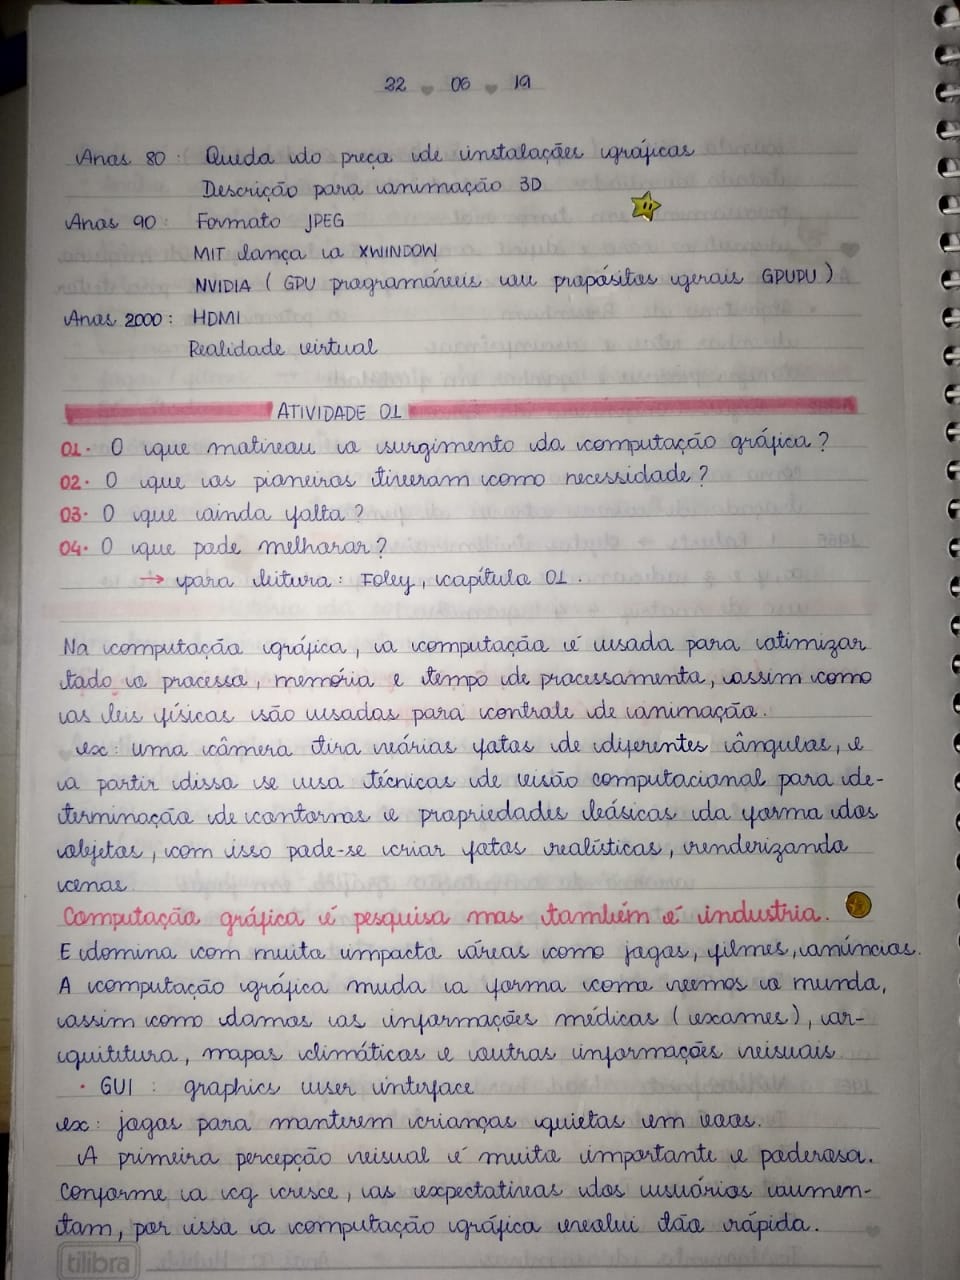 22 06 19
Anos 80: Queda do preço de instalações gráficas
Descrição para animação 3D
Anos 90: Formato JPEG
MIT lança o XWINDOW
NVIDIA (GPU programáveis ou propósitos gerais GPUPU)
Anos 2000: HDMI
Realidade virtual
ATIVIDADE 01
01. O que motivou o surgimento da computação gráfica?
02. O que os pioneiros tiveram como necessidade?
03. O que ainda falta?
04. O que pode melhorar?
→ para leitura: Foley, capítulo 01.
Na computação gráfica, a computação é usada para otimizar
todo o processo, memória e tempo de processamento, assim como
as leis físicas são usadas para controle de animação.
ex: uma câmera tira várias fotos de diferentes ângulos, e
a partir disso se usa técnicas de visão computacional para de-
terminação de contornos e propriedades básicas da forma dos
objetos, com isso pode-se criar fotos realísticas, renderizando
cenas.
Computação gráfica é pesquisa mas também é industria.
E domina com muito impacto áreas como jogos, filmes, anúncios.
A computação gráfica muda a forma como vemos o mundo,
assim como damos as informações médicas (exames), ar-
quititura, mapas climáticos e outras informações visuais.
• GUI: graphics user interface
ex: jogos para manterem crianças quietas em voos.
A primeira percepção visual é muito importante e poderosa.
Conforme a cg cresce, as expectativas dos usuários aumen-
tam, por isso a computação gráfica evolui tão rápida.
tilibra